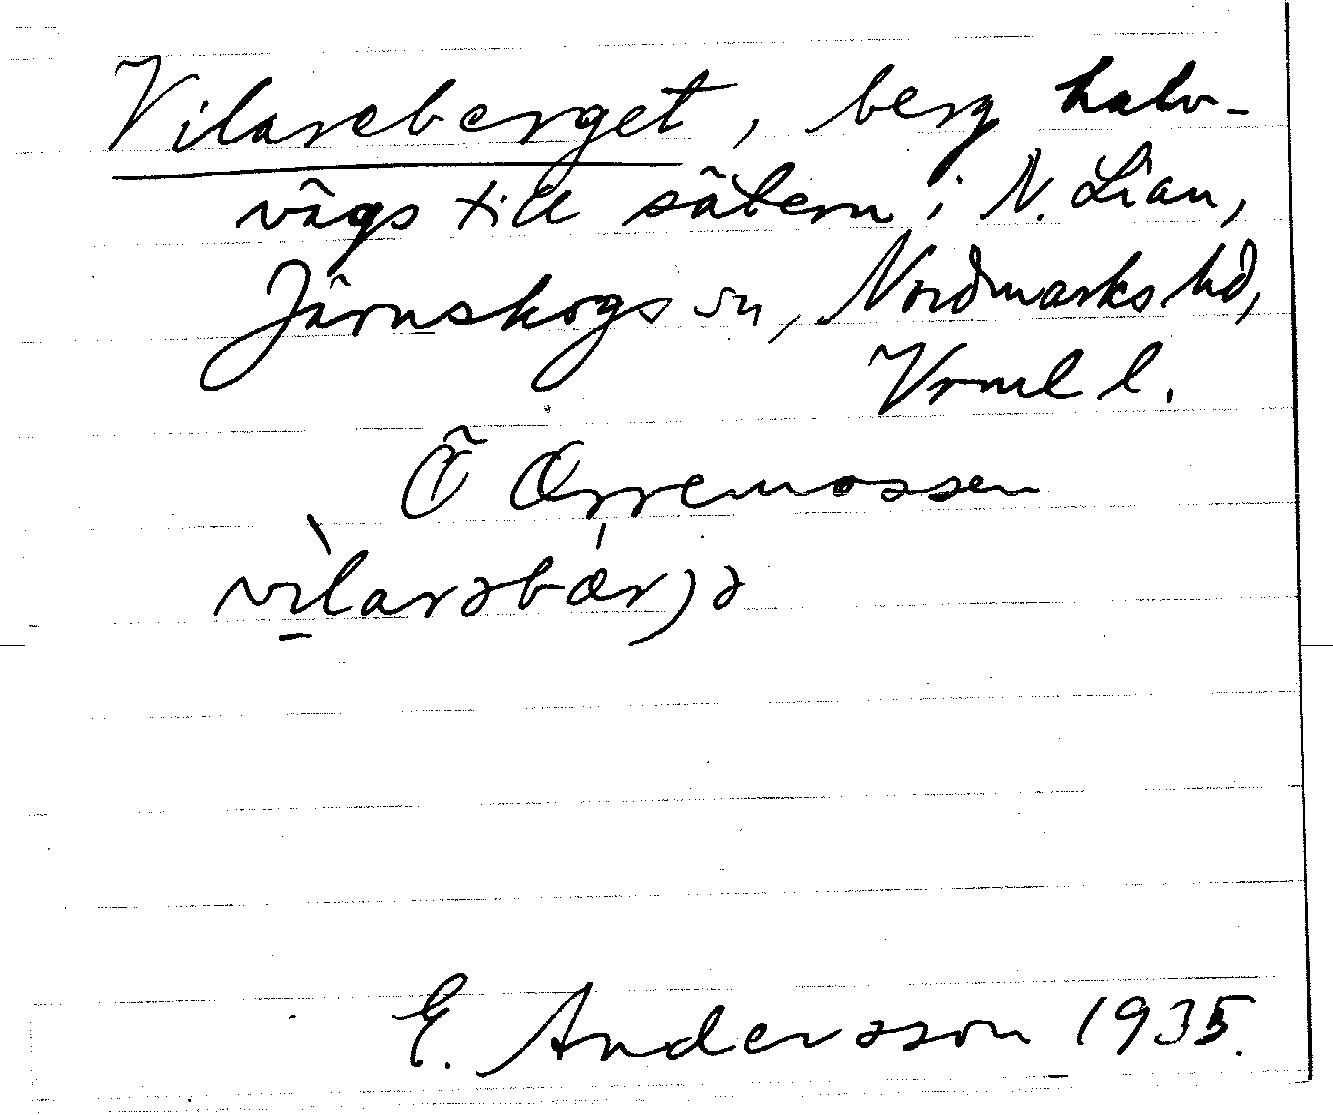 Vilareberget, berg halv-
vägs till sätern i N. Lian,
Järnskogs sn, Nordmarks hd,
Vrml l.
Ö Orremossen
`vɪlarəbær)ə
E. Andersson 1935.